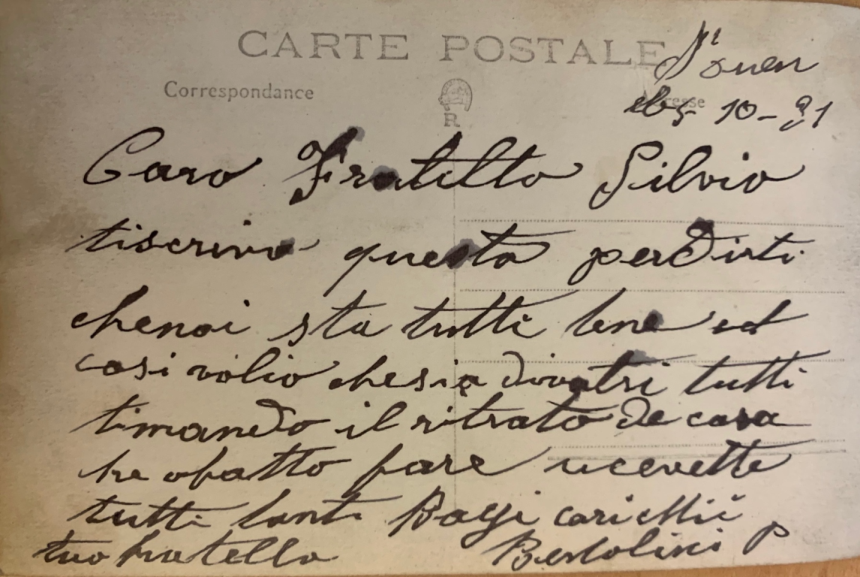 CARTE POSTALE
Correspondance
R
10-
Caro Fratello Silvio
tiscrivo questa perdirti
chenoi sta tutti bene ed
cosi volio chesia divoatri tutti
timando il ritrato de casa
he ofatto fare ricevette
tutti tanti Bagi cari
tuo fratello Bertolini P